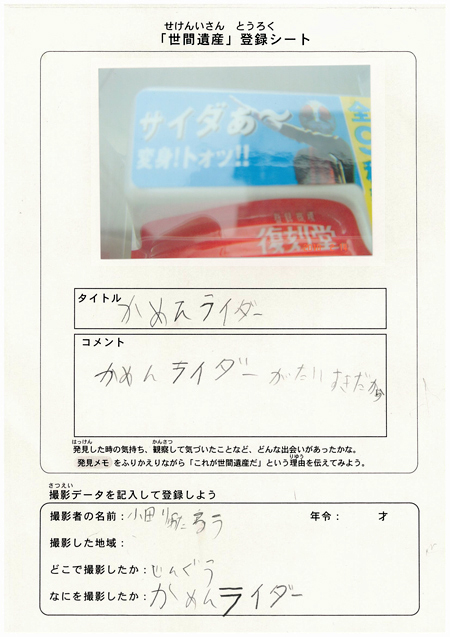 せけんいさん とうろく
「世間遺産」登録シート
サイダぁ〜
変身!トォッ!!
全
復刻堂
タイトル
かめんライダー
コメント
かめんライダー がだいすきだから
はっけん かんさつ
発見した時の気持ち、観察して気づいたことなど、どんな出会いがあったかな。
りゆう
発見メモ をふりかえりながら「これが世間遺産だ」という理由を伝えてみよう。
さつえい
撮影データを記入して登録しよう
撮影者の名前:小田
年令: 才
撮影した地域:
どこで撮影したか:じんぐう
なにを撮影したか:かめんライダー